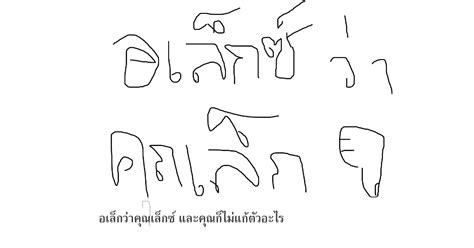 อเล็กซ์ ว่า
คุณเล็ก ๆ
อเล็กว่าคุณเล็กซ์ และคุณก็ไม่แก้ตัวอะไร